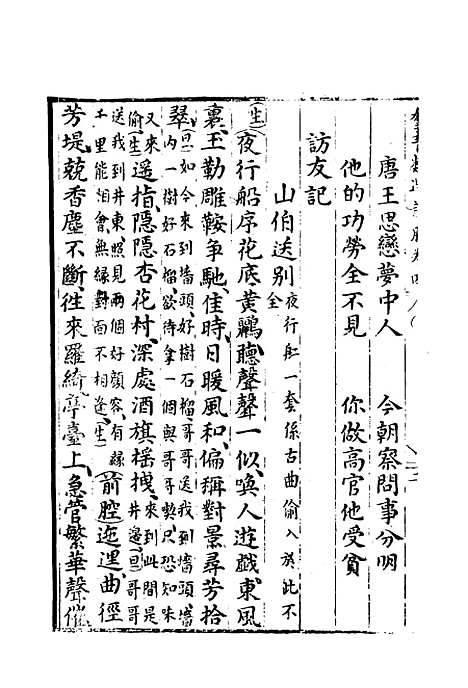 唐王思戀夢中人　今朝察問事分明
他的功勞全不見　你做高官他受貧
訪友記
山伯送別夜行船一套係古曲偷入於此不全
(生)夜行船序花底黃鸝聽聲聲一似喚人遊戲東風
裏玉勒雕鞍爭馳佳時日暖風和偏稱對景尋芳拾
翠(旦)如今來到墻頭好樹石榴哥哥送我到墻頭墻內一樹好石榴欲待拿一個與哥哥喫只恐知味
又來偷(生)遥指隱隱杏花村深處酒旗摇拽來到此間是井邊(旦)哥哥
送我到井東照見兩個好顏容有緣千里能相會無緣對面不相逢(生)前腔迤逞曲徑
芳堤兢香塵不斷徃來羅綺亭臺上急管繁華聲催